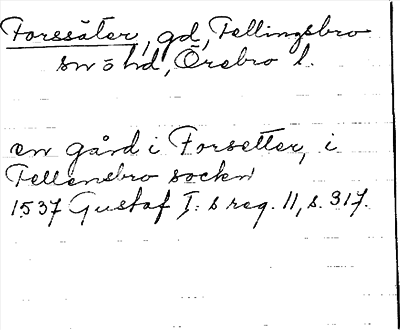 Forssäter, gd, Fellingsbro
sn o hd, Örebro l.
en gård i Forsetter, i
Fellensbro socken
1537 Gustaf I:s reg. 11, s. 317.